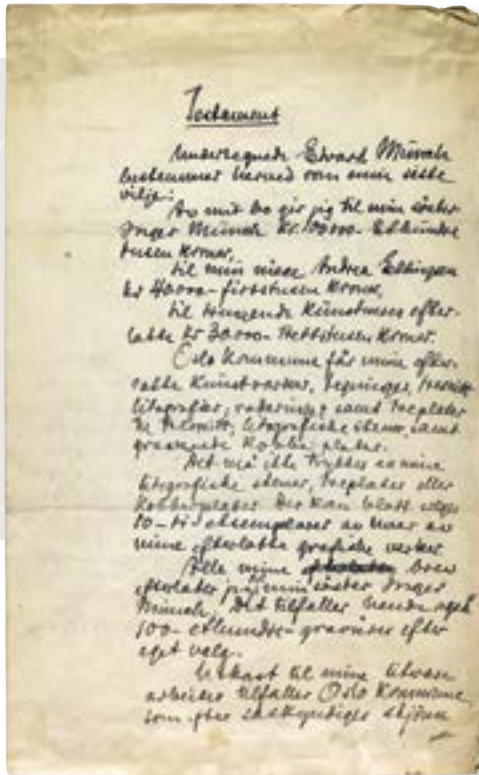 Testament
Undertegnede Edvard Munch
bestemmer herved som min siste
vilje:
Av mit bo gir jeg til min søster
Inger Munch Kr. 100000- Ethundre
tusen Kroner,
til min niese Andrea Ellingsen
kr 40000- førtitusen Kroner,
til trængende Kunstneres efter-
latte Kr 30.000- Trettitusen Kroner.
Oslo Kommune får mine efter-
latte Kunstverker, tegninger, tresnitt
litografier, raderinger samt treplater
til tresnitt, litografiske stener, samt
graverte Kobberplater.
Det må ikke trykkes av mine
litografiske stener, treplater eller
Kobberplater. Der kan blott selges
10-ti eksemplarer av hver av
mine efterlatte grafiske verker.
Alle mine brev
efterlater jeg min søster Inger
Munch. Det tilfaller hende også
100- etthundre- gravürer efter
eget valg.
Utkast til mine litterære
arbeider tilfaller Oslo Kommune,
som efter sakkyndiges skjønn